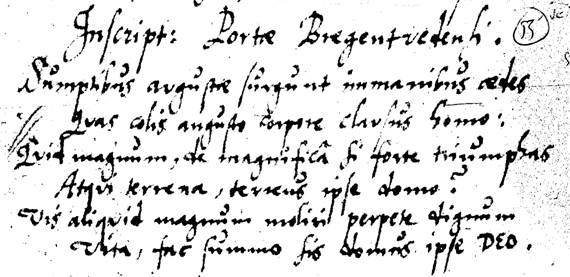 Inscript: Portæ Bregentvedensi. 55
Sumptibus augustæ surgunt immanibus ædes
Quas colis angusto corpore clausus homo:
Quid magnum, de magnificâ si forte triumphas
Atqui terrena, terreus ipse domo?
Vis aliquid magnum moliri perpete dignum
Vita, fac summo sis domus ipse DEO.